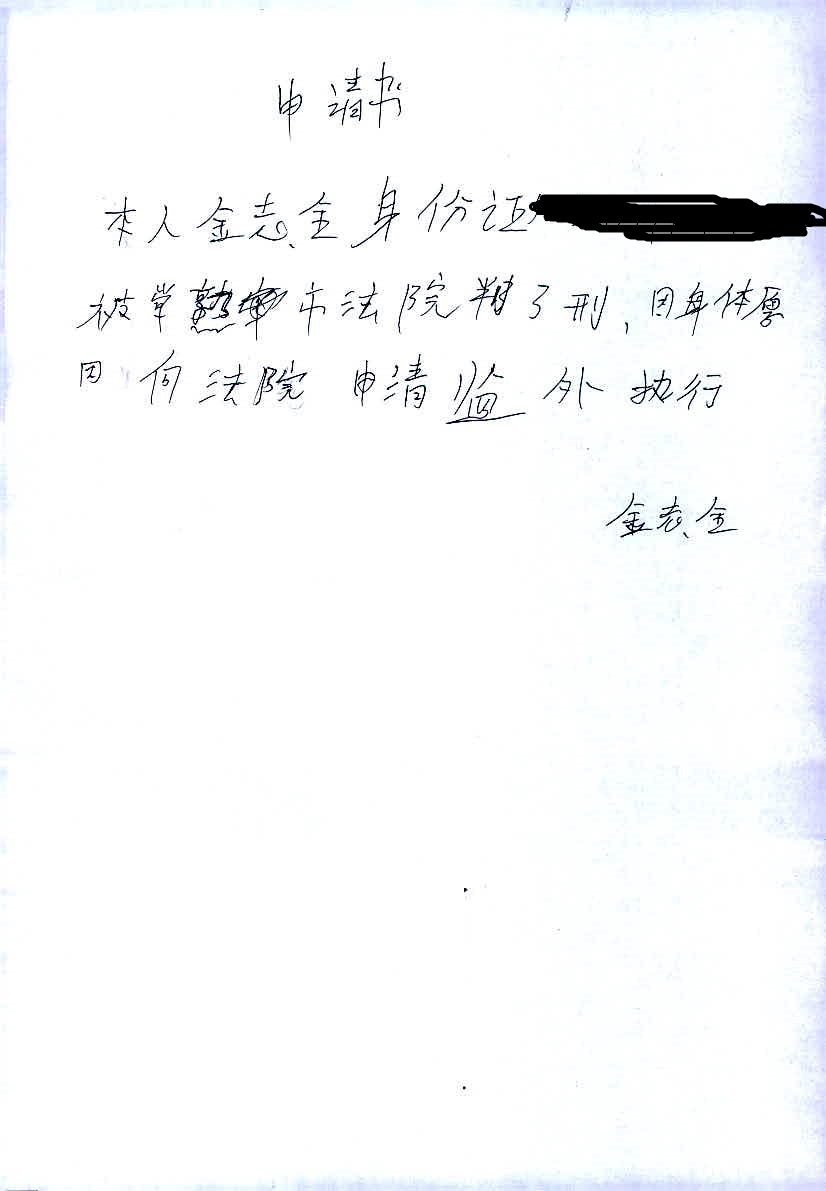 申请书
本人金志全身份证
被常熟市法院判了刑，因身体原
因 向法院 申请监外执行
金志全